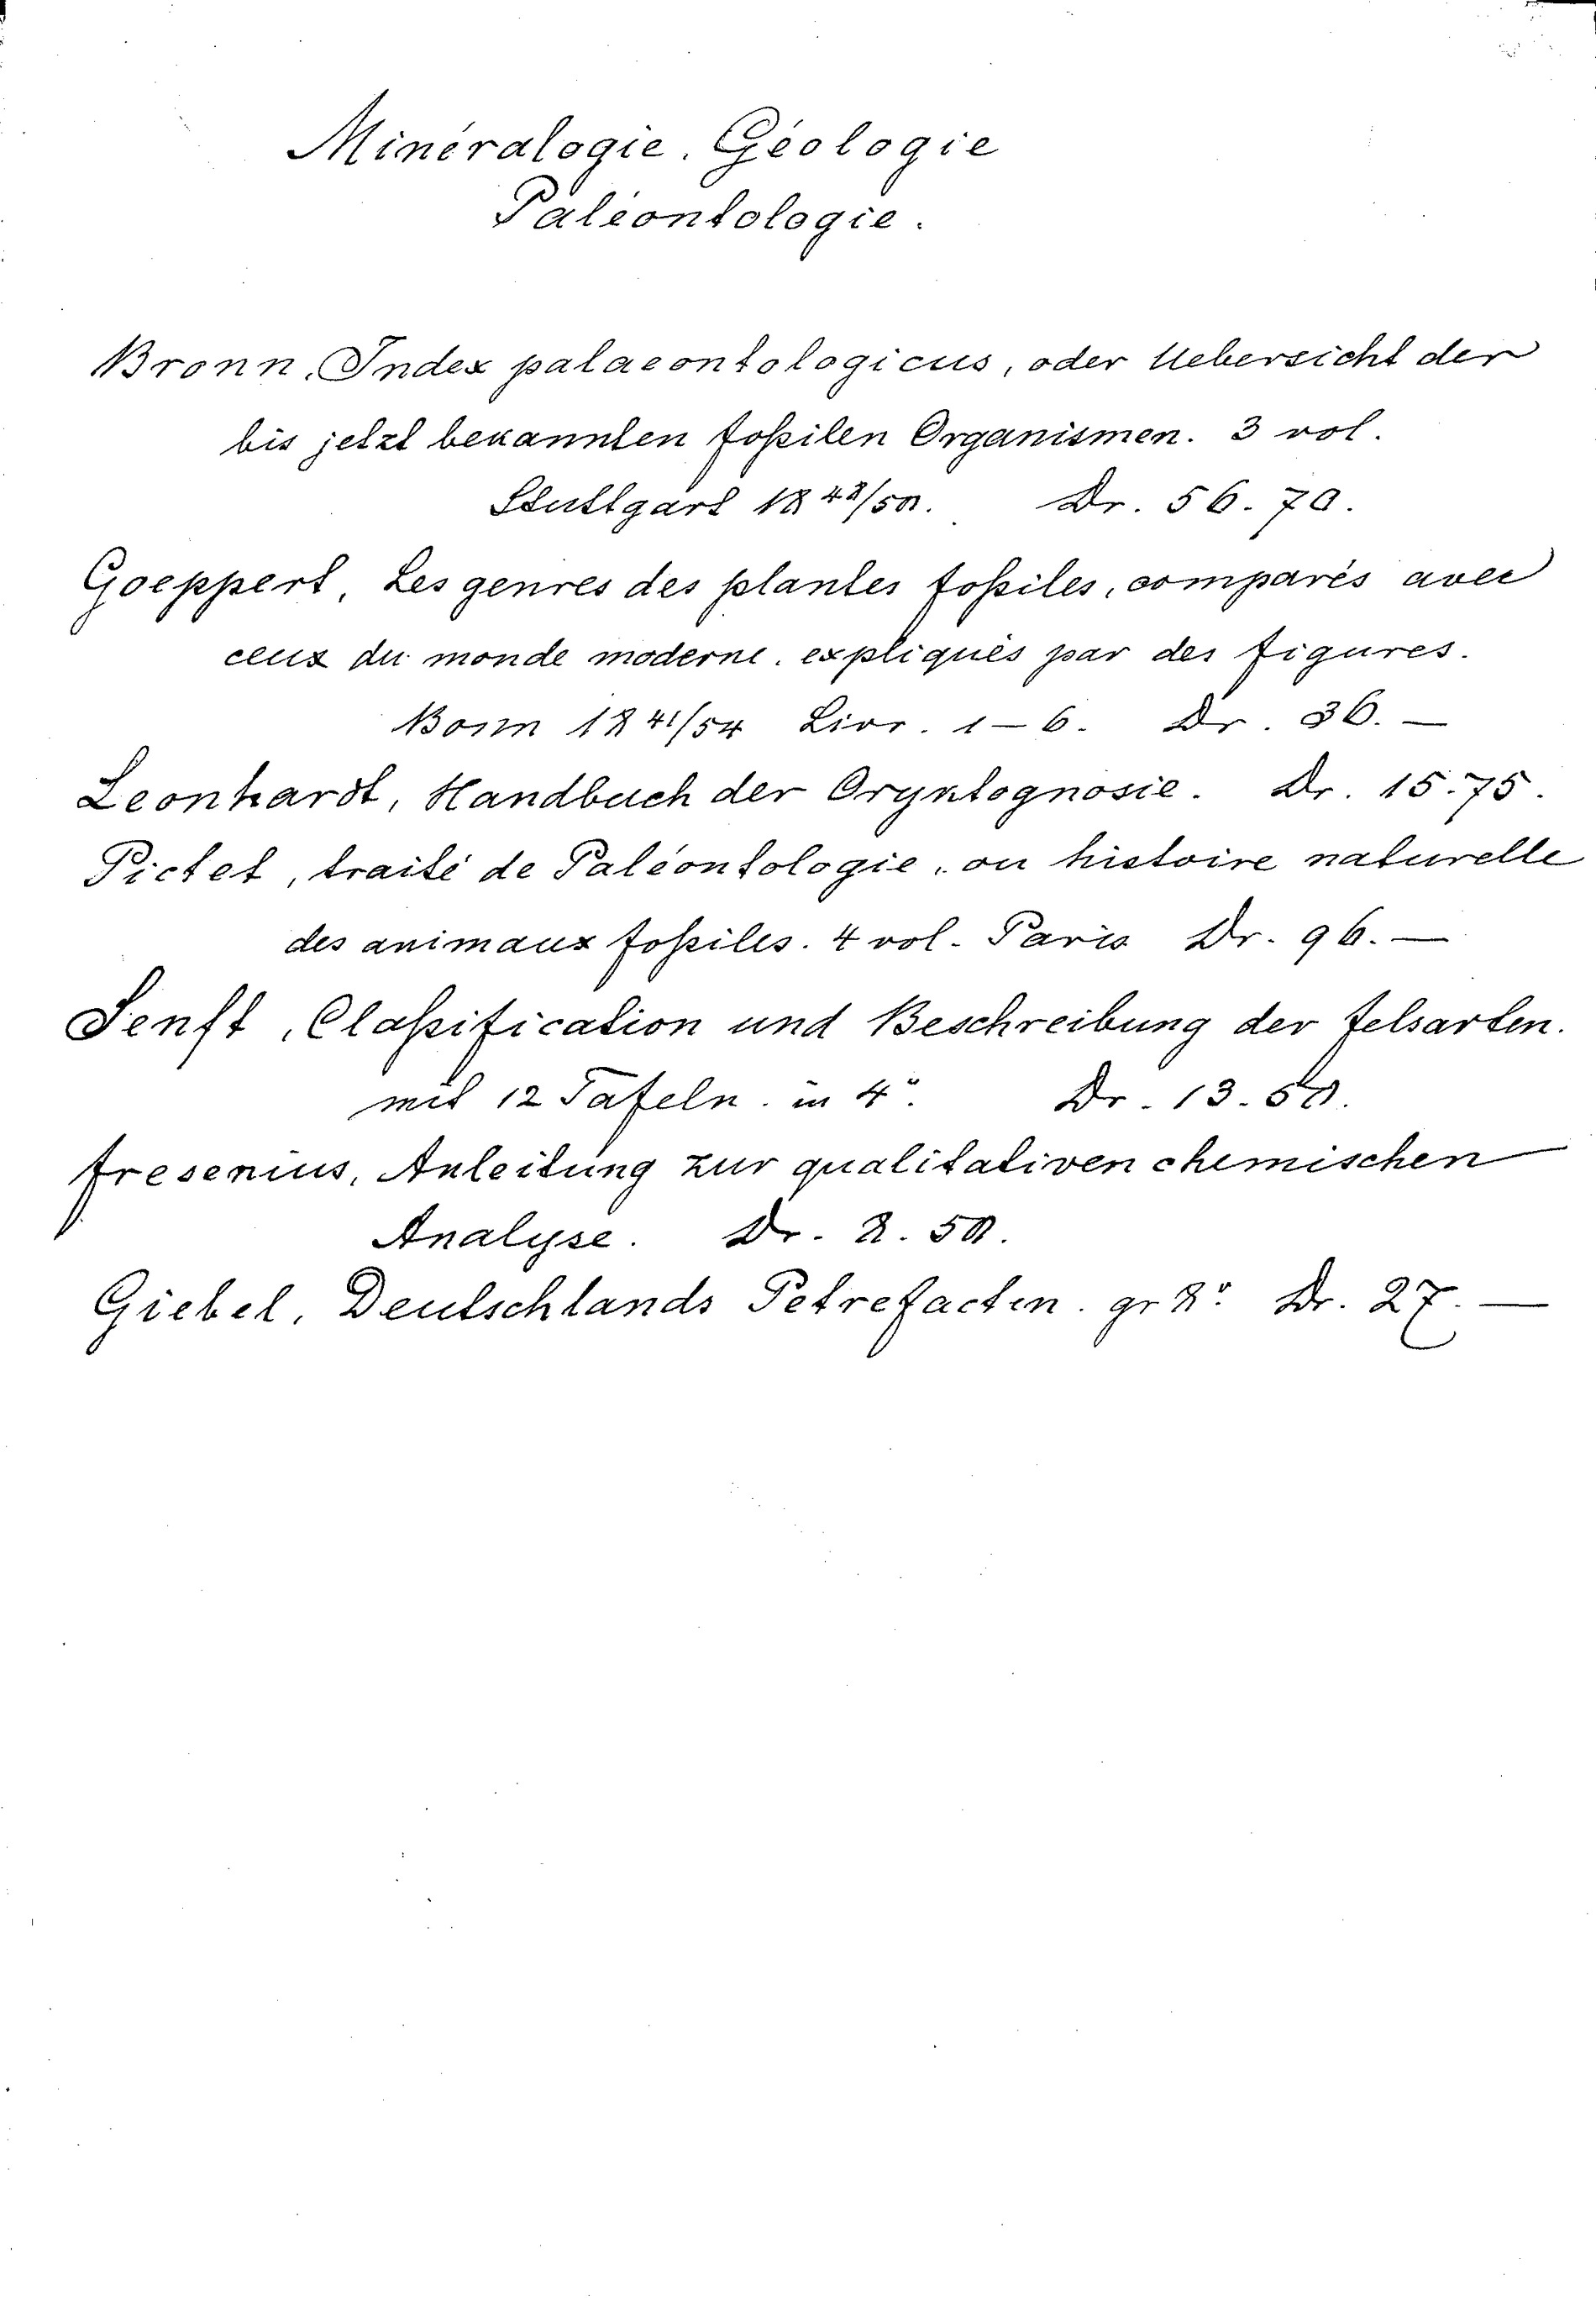 Minéralogie. Géologie
Paléontologie.
Bronn, Index palaeontologicus, oder Uebersicht der
bis jetzt bekannten foßilen Organismen. 3 vol.
Stuttgart 18 48/50. Dr. 56.70.
Goeppert, Les genres des plantes foßiles, comparés avec
ceux du monde moderne, expliqués par des figures.
Bonn 18 41/54 Livr. 1–6. Dr. 36.—
Leonhardt, Handbuch der Oryktognosie. Dr. 15.75.
Pictet, traité de Paléontologie, ou histoire naturelle
des animaux foßiles. 4 vol. Paris Dr. 96.—
Senft, Claßification und Beschreibung der Felsarten.
mit 12 Tafeln. in 4°. Dr. 13.50.
Fresenius, Anleitung zur qualitativen chemischen
Analyse. Dr. 8.50.
Giebel, Deutschlands Petrefacten. gr 8°. Dr. 27.—